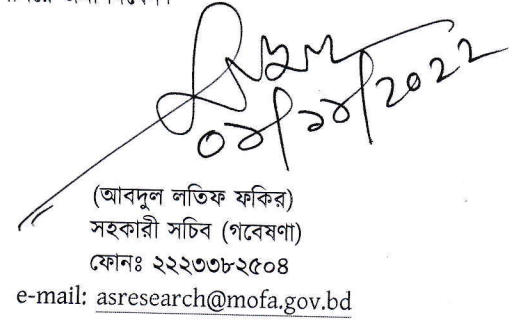 (আবদুল লতিফ ফকির)
সহকারী সচিব (গবেষণা)
ফোনঃ ২২২৩৩৮২৫০৪
e-mail: asresearch@mofa.gov.bd